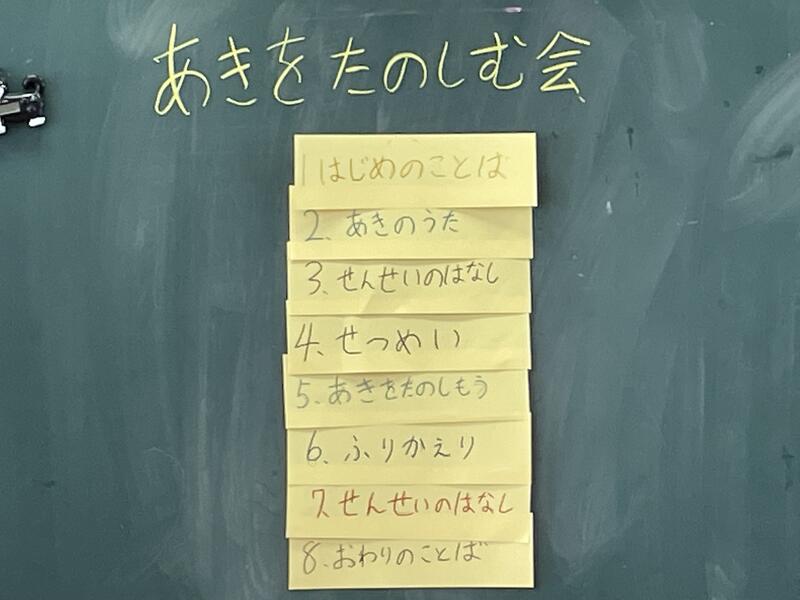 あきをたのしむ会
1 はじめのことば
2. あきのうた
3. せんせいのはなし
4. せつめい
5. あきをたのしもう
6. ふりかえり
7. せんせいのはなし
8. おわりのことば